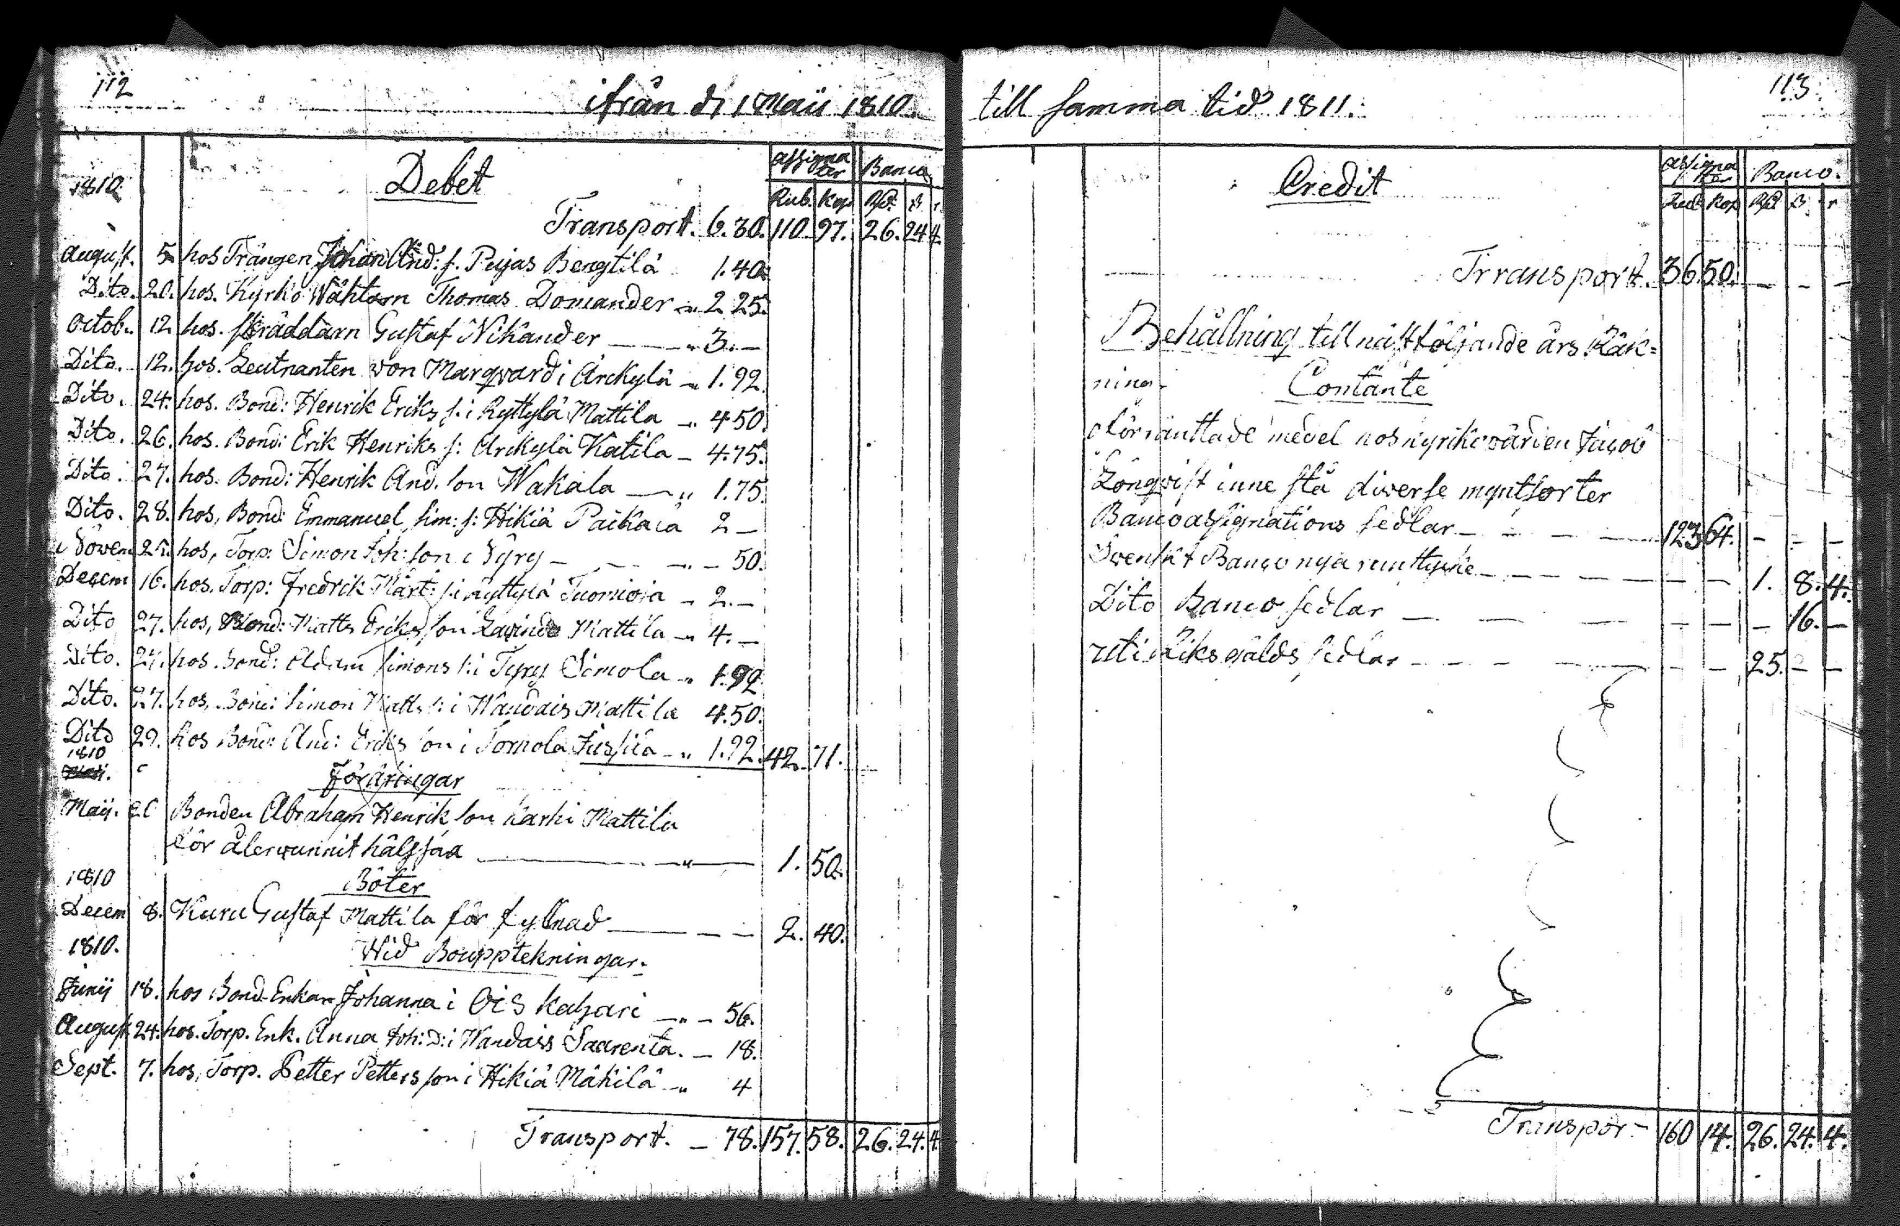 112
ifrån d: 1 Maii 1810.
1810.
Debet
assignater Banco
Rub. Kop. Rd. ß r
Transport. 6.30. 110. 97. 26. 24 4.
August. 5. hos Trängen Johan And: s. Pujas Bengtilä 1.40.
Dito. 20. hos. Kyrko Wähtarn Thomas Domander 2 25.
Octob. 12. hos. skräddarn Gustaf Nikander 3. —
Dito. 12. hos. Leutnanten von Marqvard i Arckylä 1.92.
Dito. 24. hos. Bond: Henrik Eriks s: i Ryttylä Mattila 4 50.
Dito. 26. hos. Bond: Erik Henriks s: Arckylä Katila — 4.75.
Dito. 27. hos. Bond: Henrik And. son Wakala 1.75.
Dito. 28. hos, Bond: Emmanuel Sim: s: Hikiä Paikala 2 —
Novem 25. hos, Torp: Simon Joh: son i — 50.
Decem 16. hos. Torp: Fredrik Mårt: s: i Ryttylä — 2. —
Dito 27. hos, Bond: Matts Eriks son Mattila 4. —
Dito. 27. hos. Bond: Adam Simons s: i Simola 1.92
Dito. 27. hos, Bond: Simon Matts s: i Wandais Mattila 4.50.
Dito 29. hos Bond: And: Eriks son i Tornola Jussila 1.92. 42. 71.
1810
Föräringar
Maij. Bonden Abraham Henrik son Karhi Mattila
för återwunnit hälssa 1. 50.
1810
Böter
Decem 8. Kuru Gustaf Mattila för fyllnad 2. 40.
1810. Wid Bouppteckningar.
Junij 18. hos Bond. Enkan Johanna i Ois Kaharri 56.
August 24. hos. Torp. Enk. Anna Joh: D: i Wandais Saarenta. — 18.
Sept. 7. hos, Torp. Petter Petters son i Hikiä Mäkilä 4
Transport. — 78. 157. 58. 26. 24. 4
113
till samma tid 1811.
Credit
assignater Banco.
Rub Kop Rd ß r
Transport. 36 50. — — —
Behållning till nästföljande års Räk=
ning.
Contante
Förräntade medel hos kyrkowärden Jacob
Lönqvist inne stå diverse myntsorter
Banco assignations sedlar — 123 64. — — —
Svenskt Banco nya runstycke — 1. 8. 4.
Dito Banco sedlar — 16. —
uti Riks gälds sedlar — 25. — —
Transpor — 160 14. 26. 24. 4.